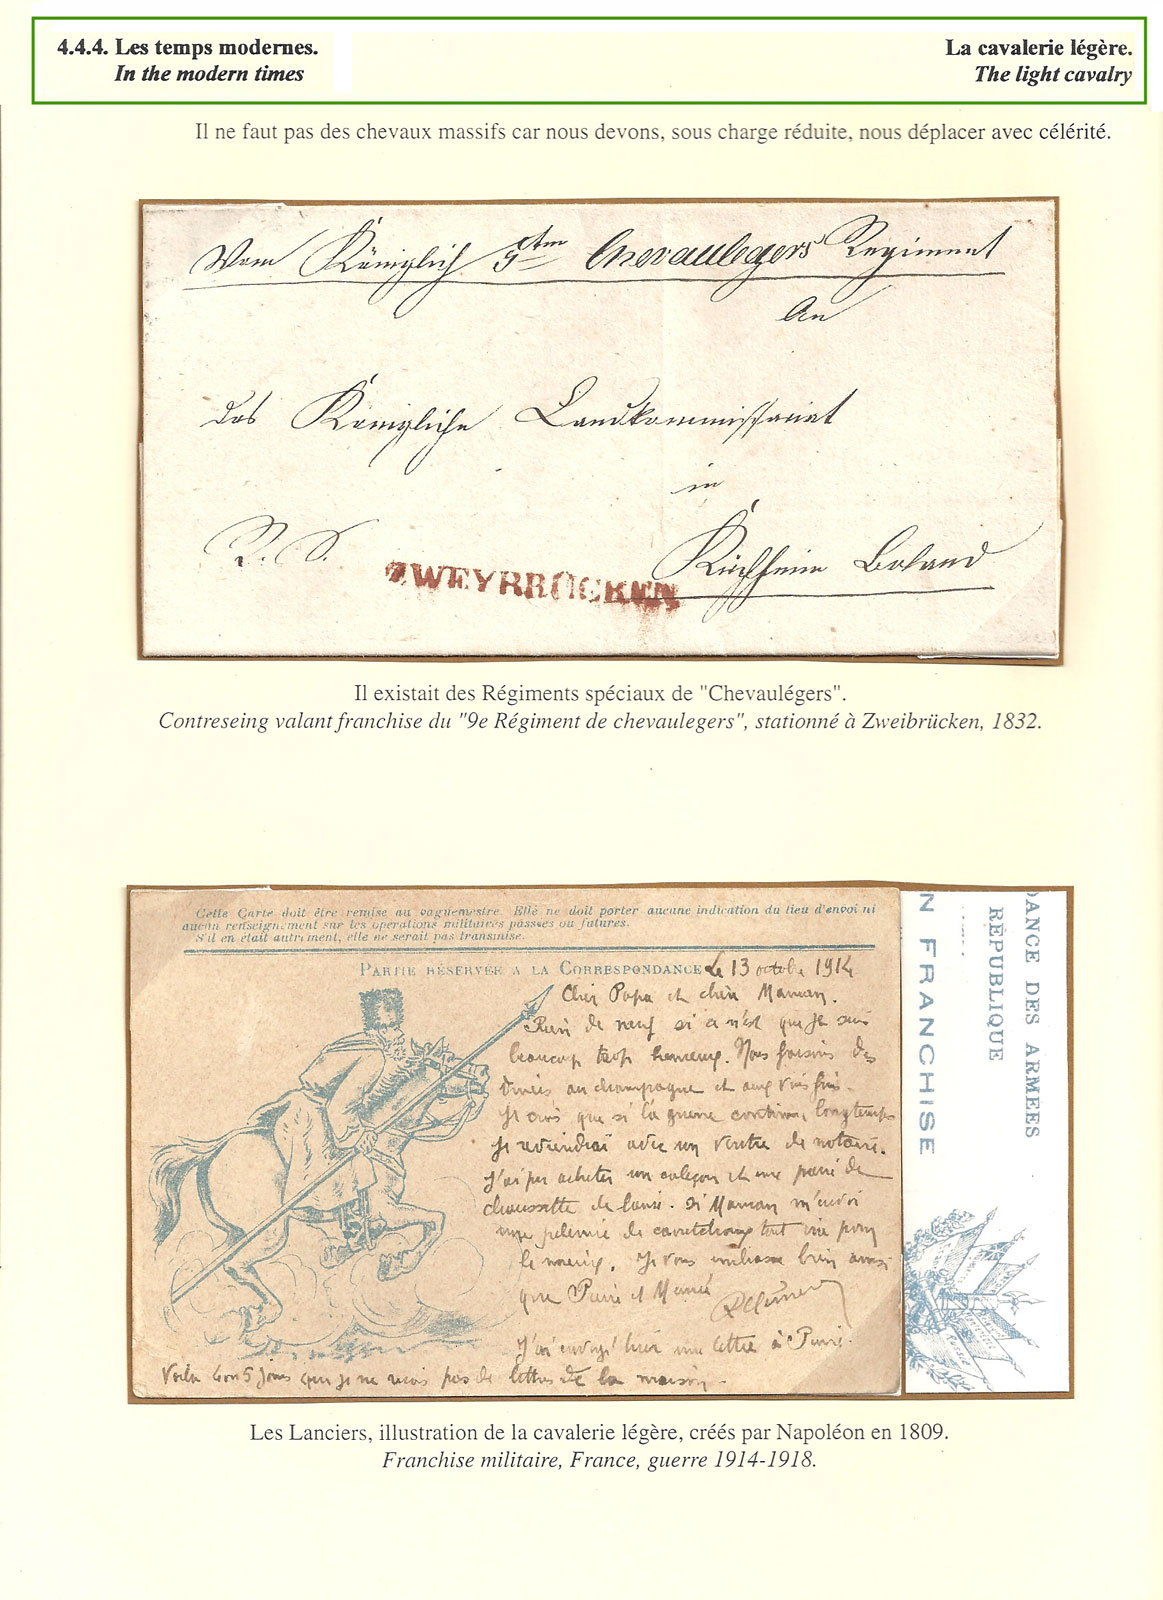 4.4.4. Les temps modernes.
In the modern times
La cavalerie légère.
The light cavalry
Il ne faut pas des chevaux massifs car nous devons, sous charge réduite, nous déplacer avec célérité.
Vom Königlich 5tm Chevaulegers Regiment
An
das Königliche Landkommissariat
in
R. S.
Kirchheim Boland
ZWEYBRÜCKEN
Il existait des Régiments spéciaux de "Chevaulégers".
Contreseing valant franchise du "9e Régiment de chevaulegers", stationné à Zweibrücken, 1832.
Cette Carte doit être remise au vaguemestre. Elle ne doit porter aucune indication du lieu d'envoi ni
aucun renseignement sur les opérations militaires passées ou futures.
S'il en était autrement, elle ne serait pas transmise.
PARTIE RÉSERVÉE A LA CORRESPONDANCE
Le 13 octobre 1914
Cher Papa et chère Maman.
Rien de neuf si ce n'est que je suis
beaucoup trop heureux. Nous faisons des
diners au champagne et aux vins fins.
Je crois que si la guerre continue longtemps
je reviendrai avec un ventre de notaire.
J'ai pu acheter un caleçon et une paire de
chaussette de laine. Si Maman m'envoi
une pelerine de caoutchouc tout ira pour
le mieux. Je vous embrasse bien ainsi
que et
J'ai envoyé hier une lettre à
Voila 4 ou 5 jours que je ne reçois pas de lettres de la maison.
DANCE DES ARMEES
RÉPUBLIQUE
N FRANCHISE
Les Lanciers, illustration de la cavalerie légère, créés par Napoléon en 1809.
Franchise militaire, France, guerre 1914-1918.